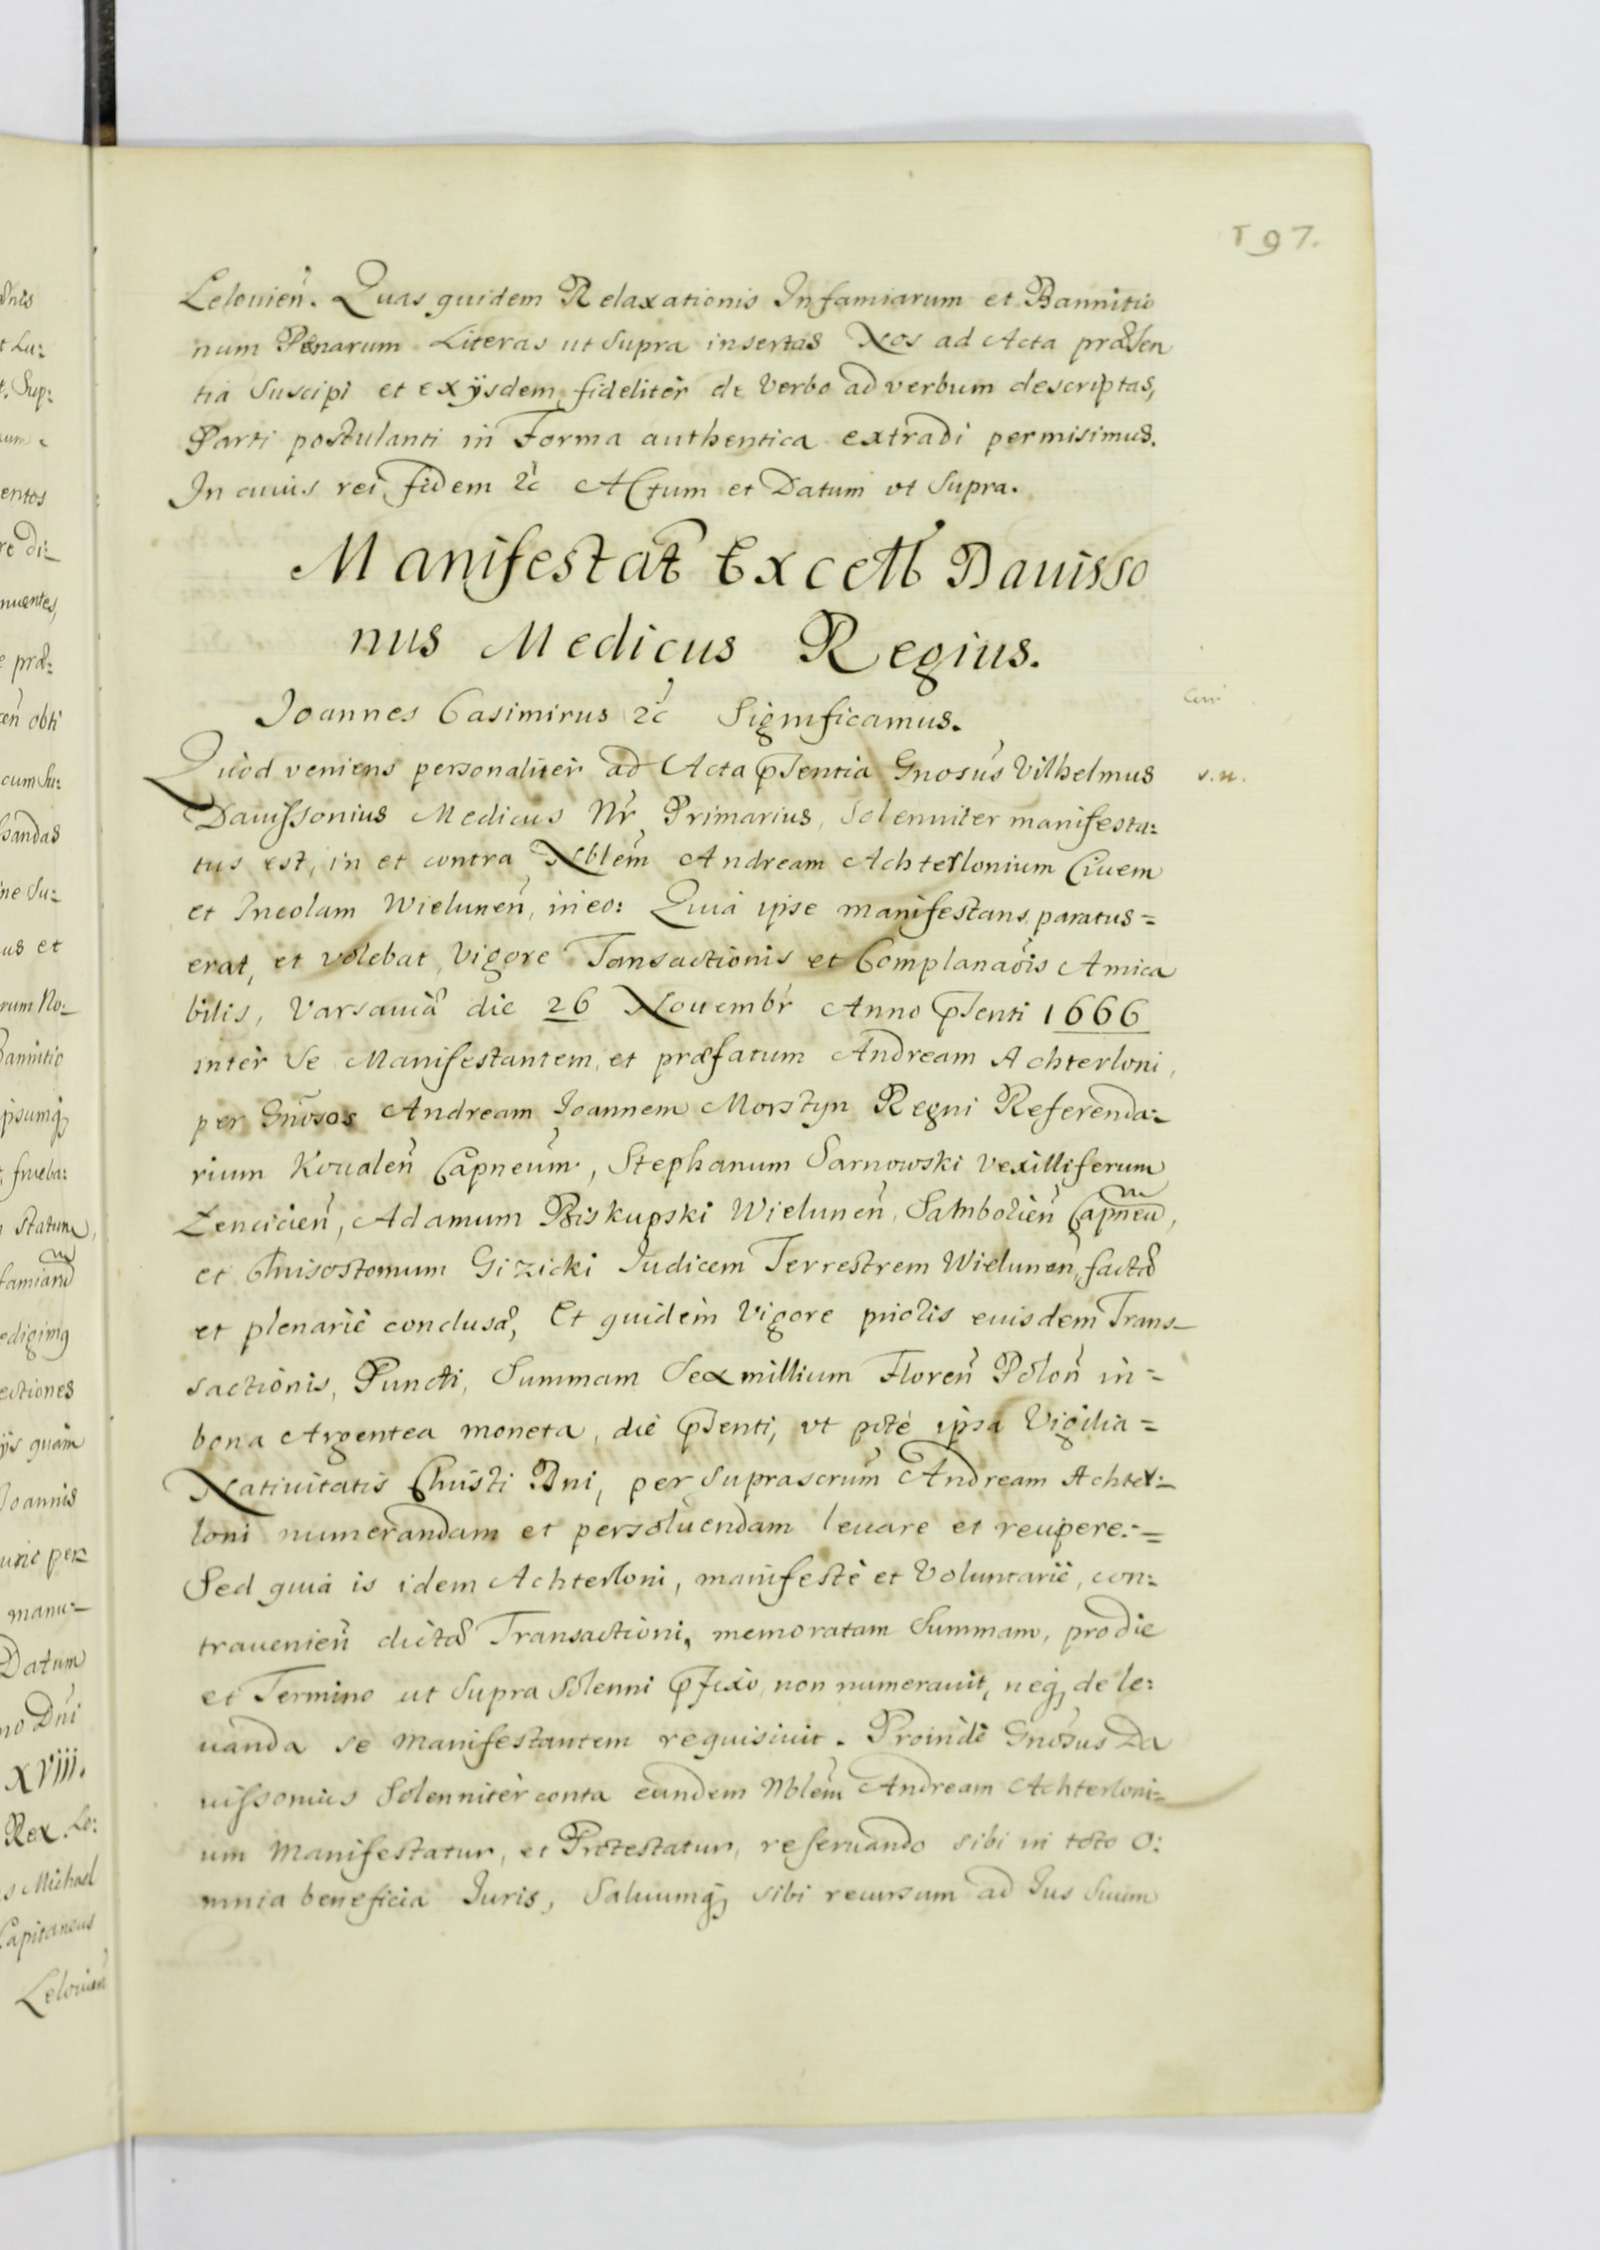 197.
Lelouien̄. Quas quidem Relaxationis Infamiarum et Bannitio
num Pænarum Literas ut Supra insertas Nos ad Acta præsen
tia Suscipi et ex ijsdem fideliter de Verbo ad verbum descriptas,
Parti postulanti in Forma authentica extradi permisimus.
In cuius rei fidem &c̄ Actum et Datum vt Supra.
Manifestat̄ Excell̄ Dauisso
nus Medicus Regius.
Joannes Casimirus &c̄ Significamus.
Quod veniens personaliter ad Acta p̄sentia Gnosūs Vilhelmus
Dauissonius Medicus Nr̄ Primarius, Solenniter manifesta:
tus est, in et contra Nblem̄ Andream Achterlonium Ciuem
et Incolam Wielunen̄, in eo: Quia ipse manifestans paratus=
erat, et volebat, Vigore Tansactionis et Complanaōis Amica
bilis, Varsauiæ die 26 Nouembr̄ Anno p̄senti 1666
inter Se Manifestantem, et præfatum Andream Achterloni,
per Gnōsos Andream Joannem Morstyn Regni Referenda:
rium Koualen̄ Capneum̄, Stephanum Sarnowski Vexilliferum
Lencicien̄, Adamum Biskupski Wielunen̄, Samborien̄ Capneū,
et Chrisostomum Gizicki Iudicem Terrestrem Wielunen̄, factæ
et plenarie conclusæ, Et quidem Vigore prioris euisdem Trans-
sactionis, Puncti, Summam Sex millium Floren̄ Polon̄ in=
bona Argentea moneta, die p̄senti, vt pote ipsa Vigilia=
Natiuitatis Christi Dni, per Suprascrum̄ Andream Achter:
loni numerandam et persoluendam leuare et recipere:=
Sed quia is idem Achterloni, manifeste et Voluntarie, con:
trauenien̄ dictæ Transactioni, memoratam Summam, pro die
et Termino ut Supra Solenni p̄fixo, non numerauit, neq₃ de le:
uanda se manifestantem requisiuit. Proinde Gnosus Da
uissonius Solenniter conta eundem Nblem̄ Andream Achterloni=
um Manifestatur, et Protestatur, reseruando sibi in toto O:
mnia beneficia Juris, Saluumq₃ sibi recursum ad Ius Suum